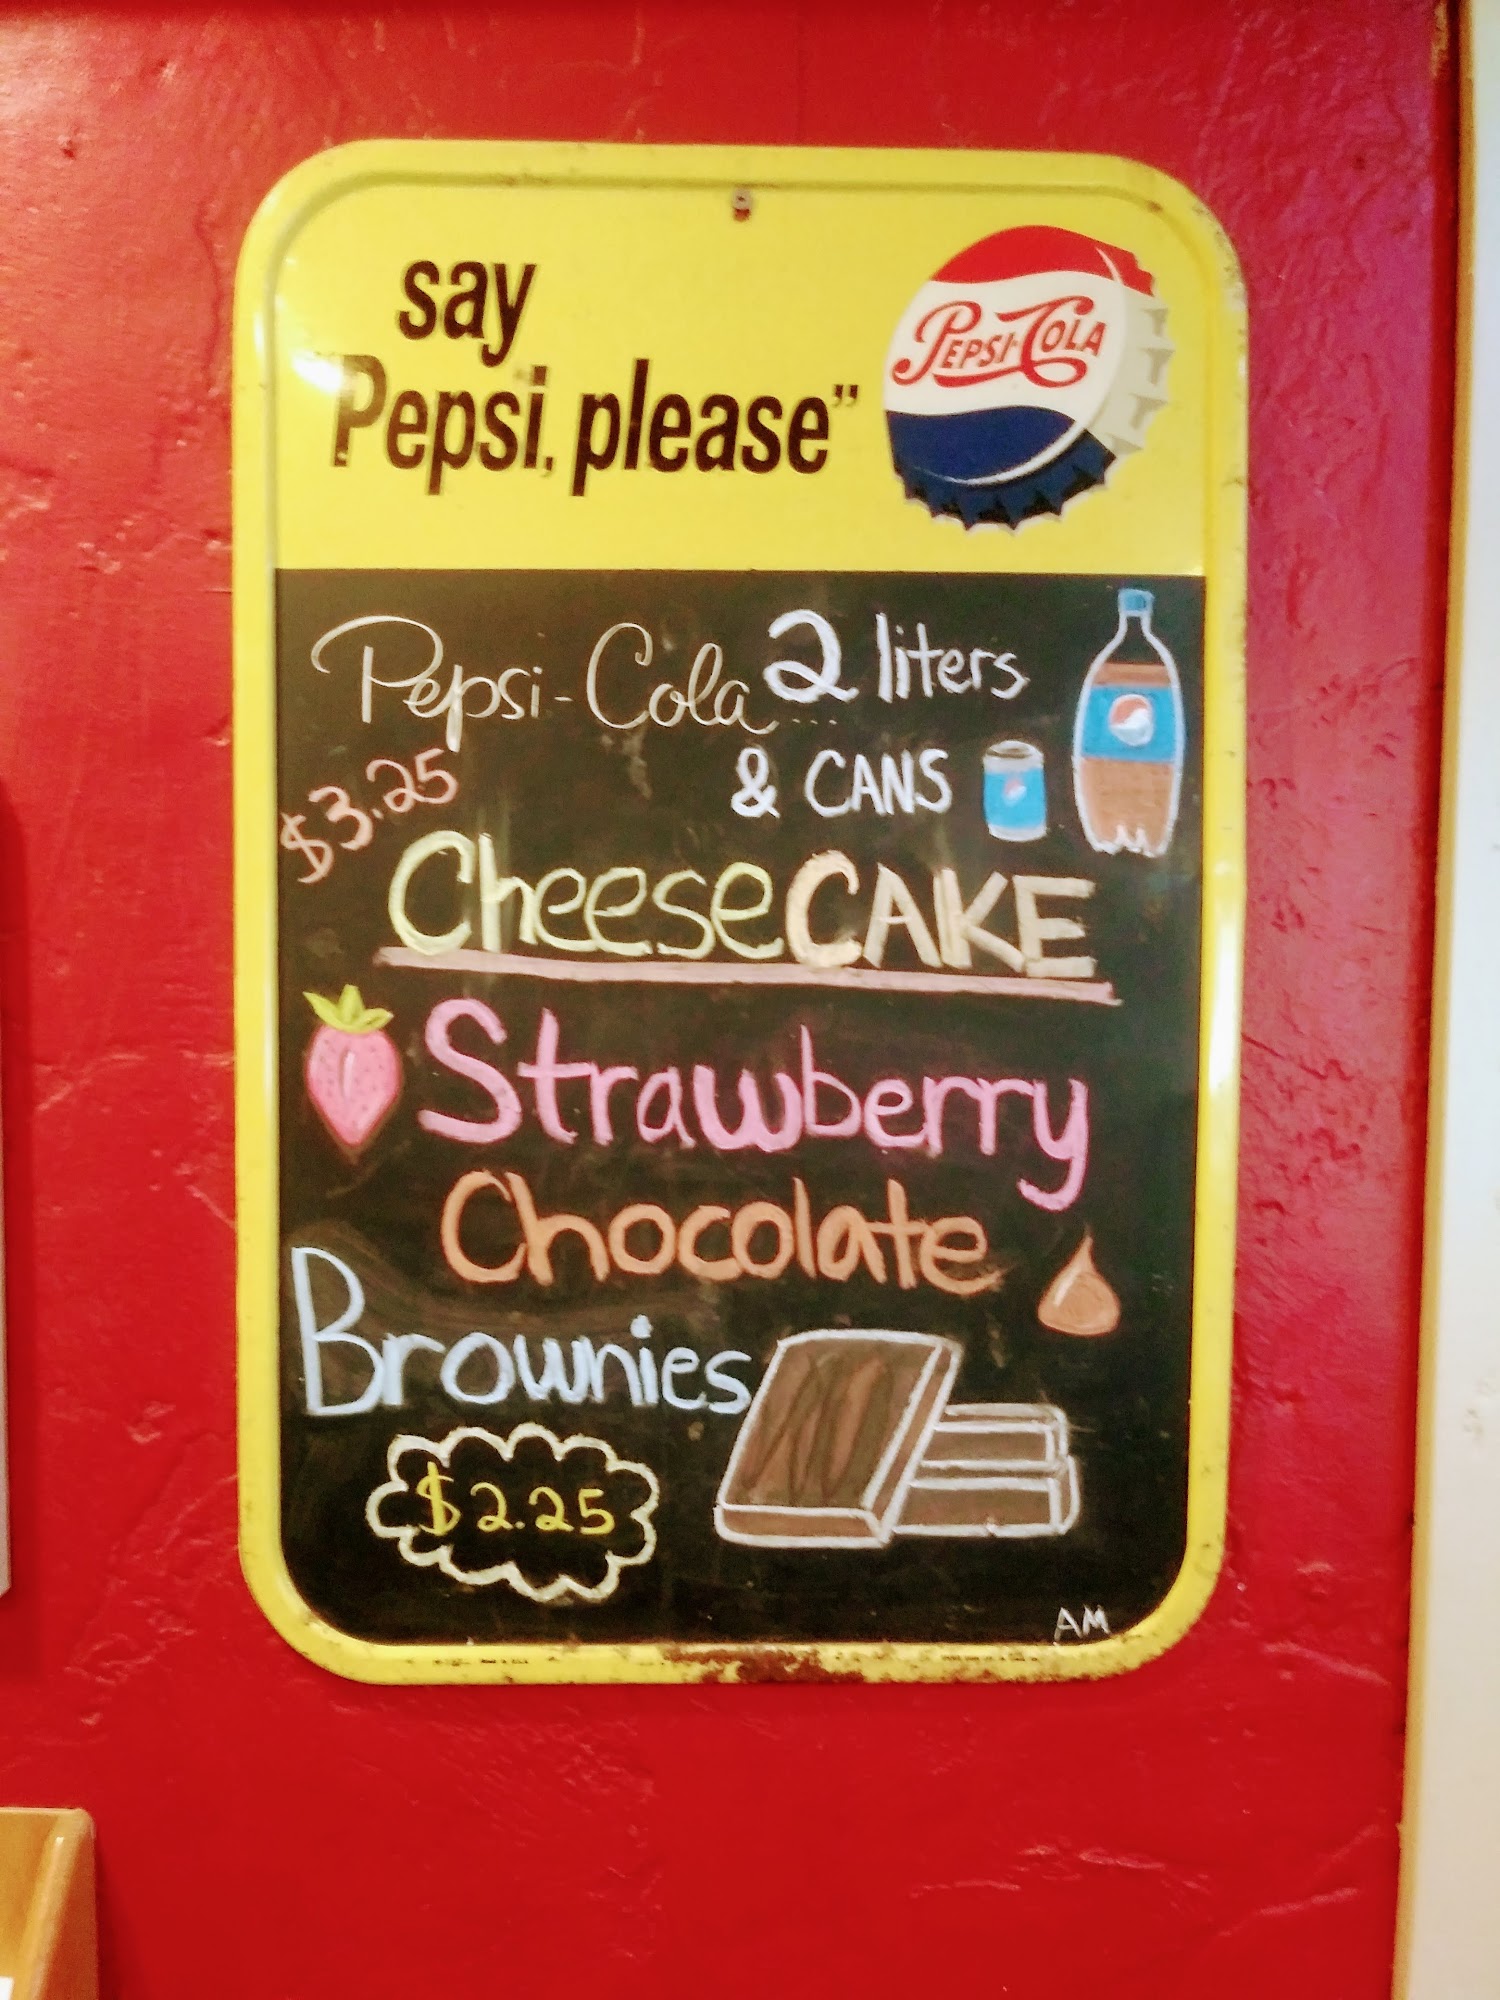 say
"Pepsi, please"
PEPSI-COLA
Pepsi-Cola 2 liters
& CANS
$3.25
CheeseCAKE
Strawberry
Chocolate
Brownies
$2.25
AM